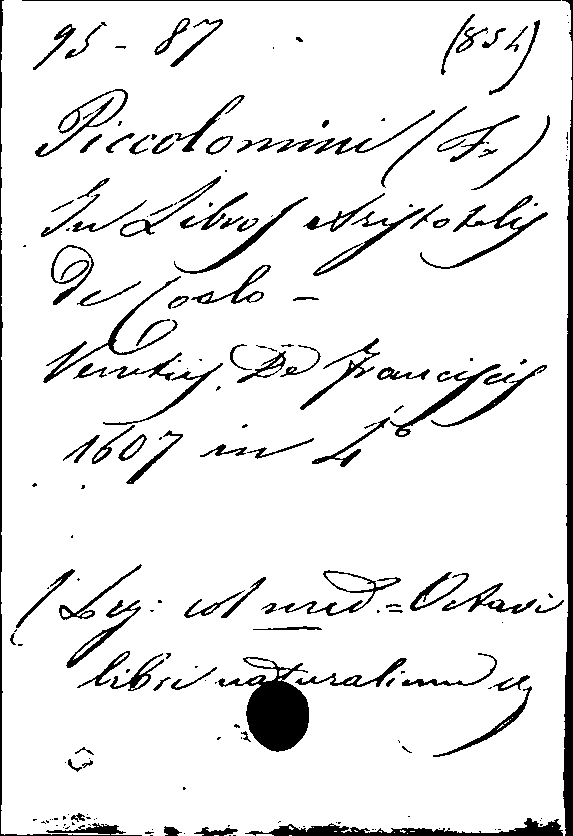 95 - 87 (854)
Piccolomini (Fr)
In Libros Aristotelis
De Coelo -
Venetiis, De Franciscis
1607 in 4º
(Leg: col med. = Octavi
libri naturalium